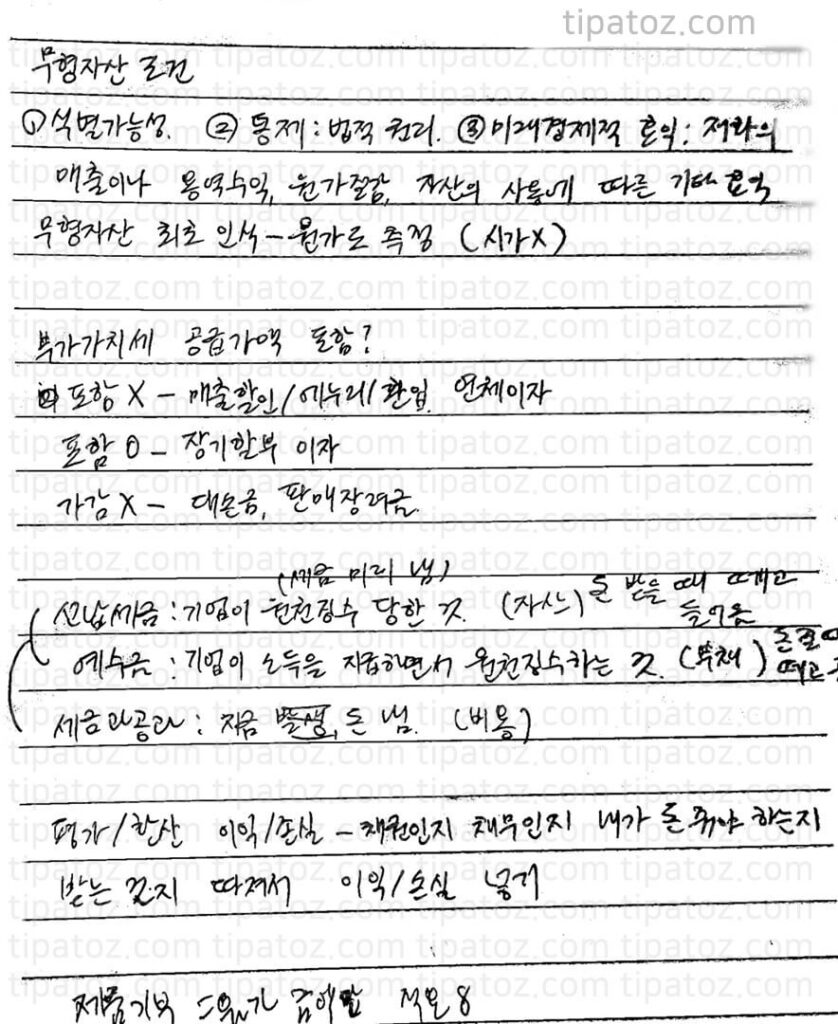 tipatoz.com
무형자산 조건
① 식별가능성. ② 통제 : 법적 권리. ③ 미래경제적 효익 : 재화의
매출이나 용역수익, 원가절감, 자산의 사용에 따른 기타 효익
무형자산 최초 인식 - 원가로 측정 (시가X)
부가가치세 공급가액 포함?
포함 X - 매출할인/에누리/환입. 연체이자
포함 O - 장기할부 이자
가감 X - 대손금, 판매장려금.
(세금 미리 냄)
선납세금 : 기업이 원천징수 당한 것. (자산) 돈 받을 때 떼고
들어옴
예수금 : 기업이 소득을 지급하면서 원천징수하는 것. (부채) 돈 줄 때
떼고
세금과공과 : 지금 발생, 돈 냄. (비용)
평가/환산 이익/손실 - 채권인지 채무인지 내가 돈 줘야 하는지
받는 건지 따져서 이익/손실 넣기
제품기부 금액만 적요 8